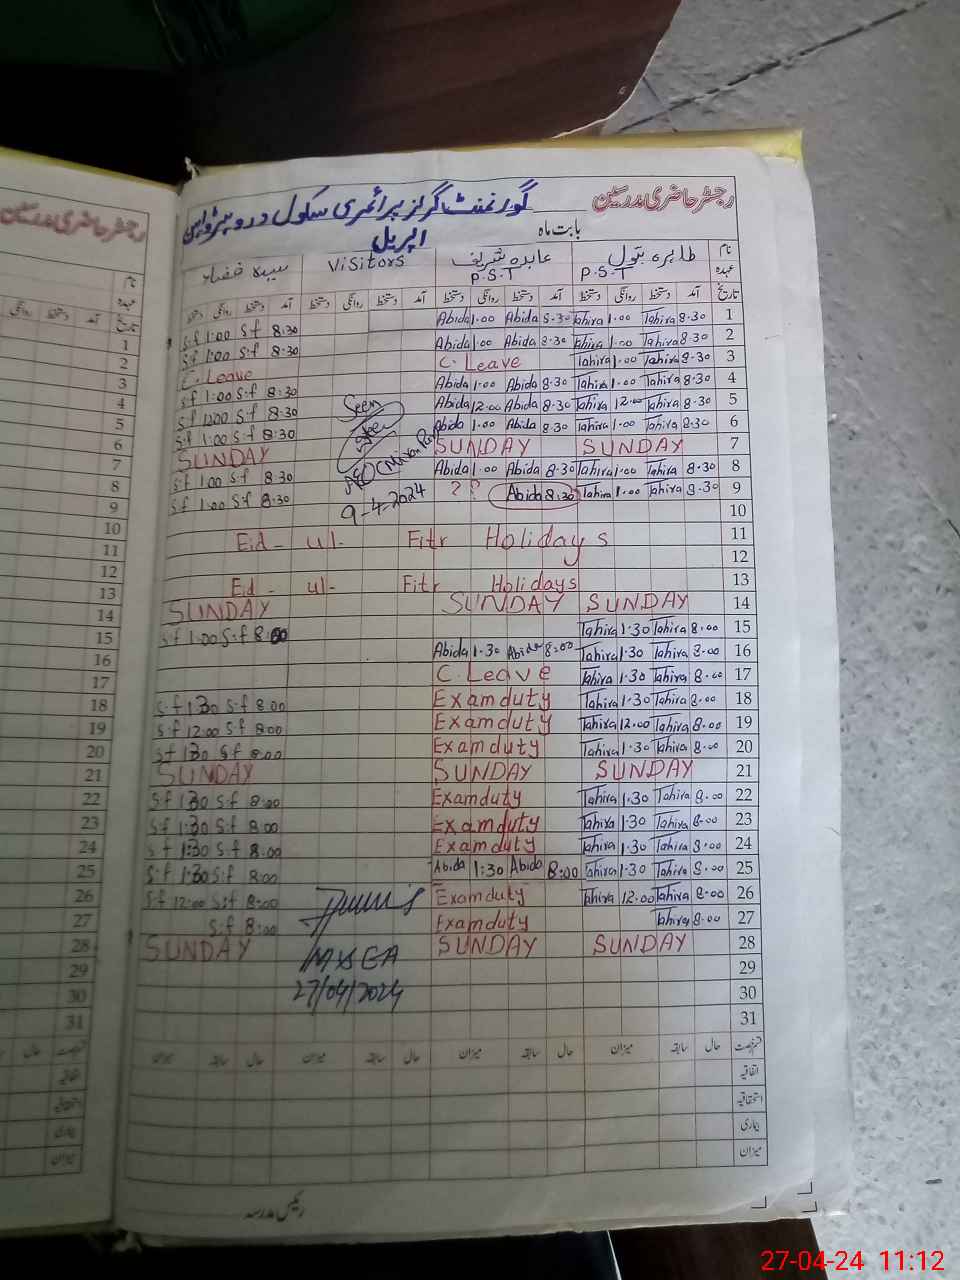 رجسٹر حاضری مدرسین گورنمنٹ گرلز پرائمری سکول
بابت ماہ اپریل
نام طاہرہ بتول عابدہ شریف Visitors
عہدہ P.S.T P.S.T
تاریخ آمد دستخط روانگی دستخط آمد دستخط روانگی دستخط آمد دستخط روانگی دستخط آمد دستخط روانگی دستخط
S.f 1:00 S.f 8:30 Abida 1.00 Abida 8.30 Tahira 1.00 Tahira 8.30 1
S.f 1:00 S.f 8:30 Abida 1.00 Abida 8.30 Tahira 1.00 Tahira 8.30 2
C. Leave C. Leave Tahira 1.00 Tahira 8.30 3
S.f 1:00 S.f 8:30 Abida 1.00 Abida 8.30 Tahira 1.00 Tahira 8.30 4
S.f 1200 S.f 8:30 Seen Abida 12.00 Abida 8.30 Tahira 12.00 Tahira 8.30 5
S.f 1:00 S.f 8:30 Abida 1.00 Abida 8.30 Tahira 1.00 Tahira 8.30 6
SUNDAY SUNDAY SUNDAY 7
S.f 1:00 S.f 8:30 Abida 1.00 Abida 8.30 Tahira 1.00 Tahira 8.30 8
S.f 1:00 S.f 8:30 9-4-2024 ? ? Abida 8.30 Tahira 1.00 Tahira 8.30 9
10
Eid - ul - Fitr Holidays 11
12
Eid - ul - Fitr Holidays 13
SUNDAY SUNDAY SUNDAY 14
S.f 1:00 S.f 8:00 Tahira 1.30 Tahira 8.00 15
Abida 1.30 Abida 8.00 Tahira 1.30 Tahira 8.00 16
C. Leave Tahira 1.30 Tahira 8.00 17
S.f 1:30 S.f 8:00 Exam duty Tahira 1.30 Tahira 8.00 18
S.f 12:00 S.f 8:00 Exam duty Tahira 12.00 Tahira 8.00 19
S.f 1:30 S.f 8:00 Exam duty Tahira 1.30 Tahira 8.00 20
SUNDAY SUNDAY SUNDAY 21
S.f 1:30 S.f 8:00 Exam duty Tahira 1.30 Tahira 8.00 22
S.f 1:30 S.f 8:00 Exam duty Tahira 1.30 Tahira 8.00 23
S.f 1:30 S.f 8:00 Exam duty Tahira 1.30 Tahira 8.00 24
S.f 1:30 S.f 8:00 Abida 1:30 Abida 8:00 Tahira 1.30 Tahira 8.00 25
S.f 12:00 S.f 8:00 Exam duty Tahira 12.00 Tahira 8.00 26
S.f 8:00 Exam duty Tahira 8.00 27
SUNDAY MXEA SUNDAY SUNDAY 28
27/04/2024
29
30
31
حال سابقہ میزان حال سابقہ میزان حال سابقہ میزان حال سابقہ میزان
اتفاقیہ
استحقاقیہ
بیماری
میزان
رئیس مدرسہ
رجسٹر حاضری مدرسین
نام
عہدہ
تاریخ آمد دستخط روانگی
1
2
3
4
5
6
7
8
9
10
11
12
13
14
15
16
17
18
19
20
21
22
23
24
25
26
27
28
29
30
31
حال
اتفاقیہ
استحقاقیہ
بیماری
میزان
27-04-24 11:12